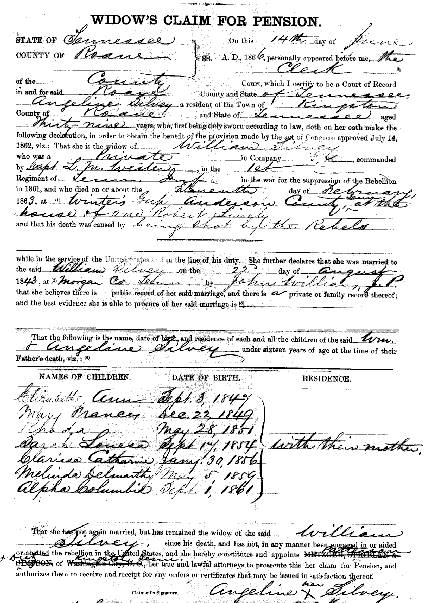 WIDOW'S CLAIM FOR PENSION.
STATE OF Tennessee
On this 14th day of June
COUNTY OF Roane
ss. A. D., 186 , personally appeared before me, the
Clerk
of the County Court, which I certify to be a Court of Record
in and for said Roane County and State of Tennessee
Angeline Silvey a resident of the Town of Kingston
County of Roane and State of Tennessee aged
Thirty nine years, who, first being duly sworn according to law, doth on her oath make the
following declaration, in order to obtain the benefit of the provision made by the act of Congress approved July 14,
1862, viz.: That she is the widow of William Silvey
who was a Private in Company commanded
by Capt in the 1st
Regiment of in the war for the suppression of the Rebellion
in 1861, and who died on or about the day of February
1863, at Winters Gap Anderson County, at the
house of one Robert
and that his death was caused by being shot by the Rebels
while in the service of the United States and in the line of his duty. She further declares that she was married to
the said William Silvey on the 22 day of August
184 , at Morgan Co by John Williams, J.P.
that she believes there is public record of her said marriage, and there is private or family record thereof;
and the best evidence she is able to procure of her said marriage is
That the following is the name, date of birth, and residence of each and all the children of the said Wm.
& Angeline Silvey under sixteen years of age at the time of their
Father's death, viz.:
NAMES OF CHILDREN. DATE OF BIRTH. RESIDENCE.
Elizabeth Ann Sept. 3, 1847
Mary Frances Dec. 22, 1849
Rhoda May 28, 1851
Sarah Louisa Sept 17, 1854 with their mother.
Clarissa Catharine Jany. 30, 1856
Melinda May 5, 1859
Alpha Columbia Sept. 1, 1861
That she has not again married, but has remained the widow of the said William
Silvey, since his death, and has not, in any manner been engaged in or aided
or abetted the rebellion in the United States, and she hereby constitutes and appoints
her true and lawful attorneys to prosecute this her claim for Pension, and
authorizes them to receive and receipt for any orders or certificates that may be issued in satisfaction thereof.
Claimant's Signature, Angeline her X Silvey.